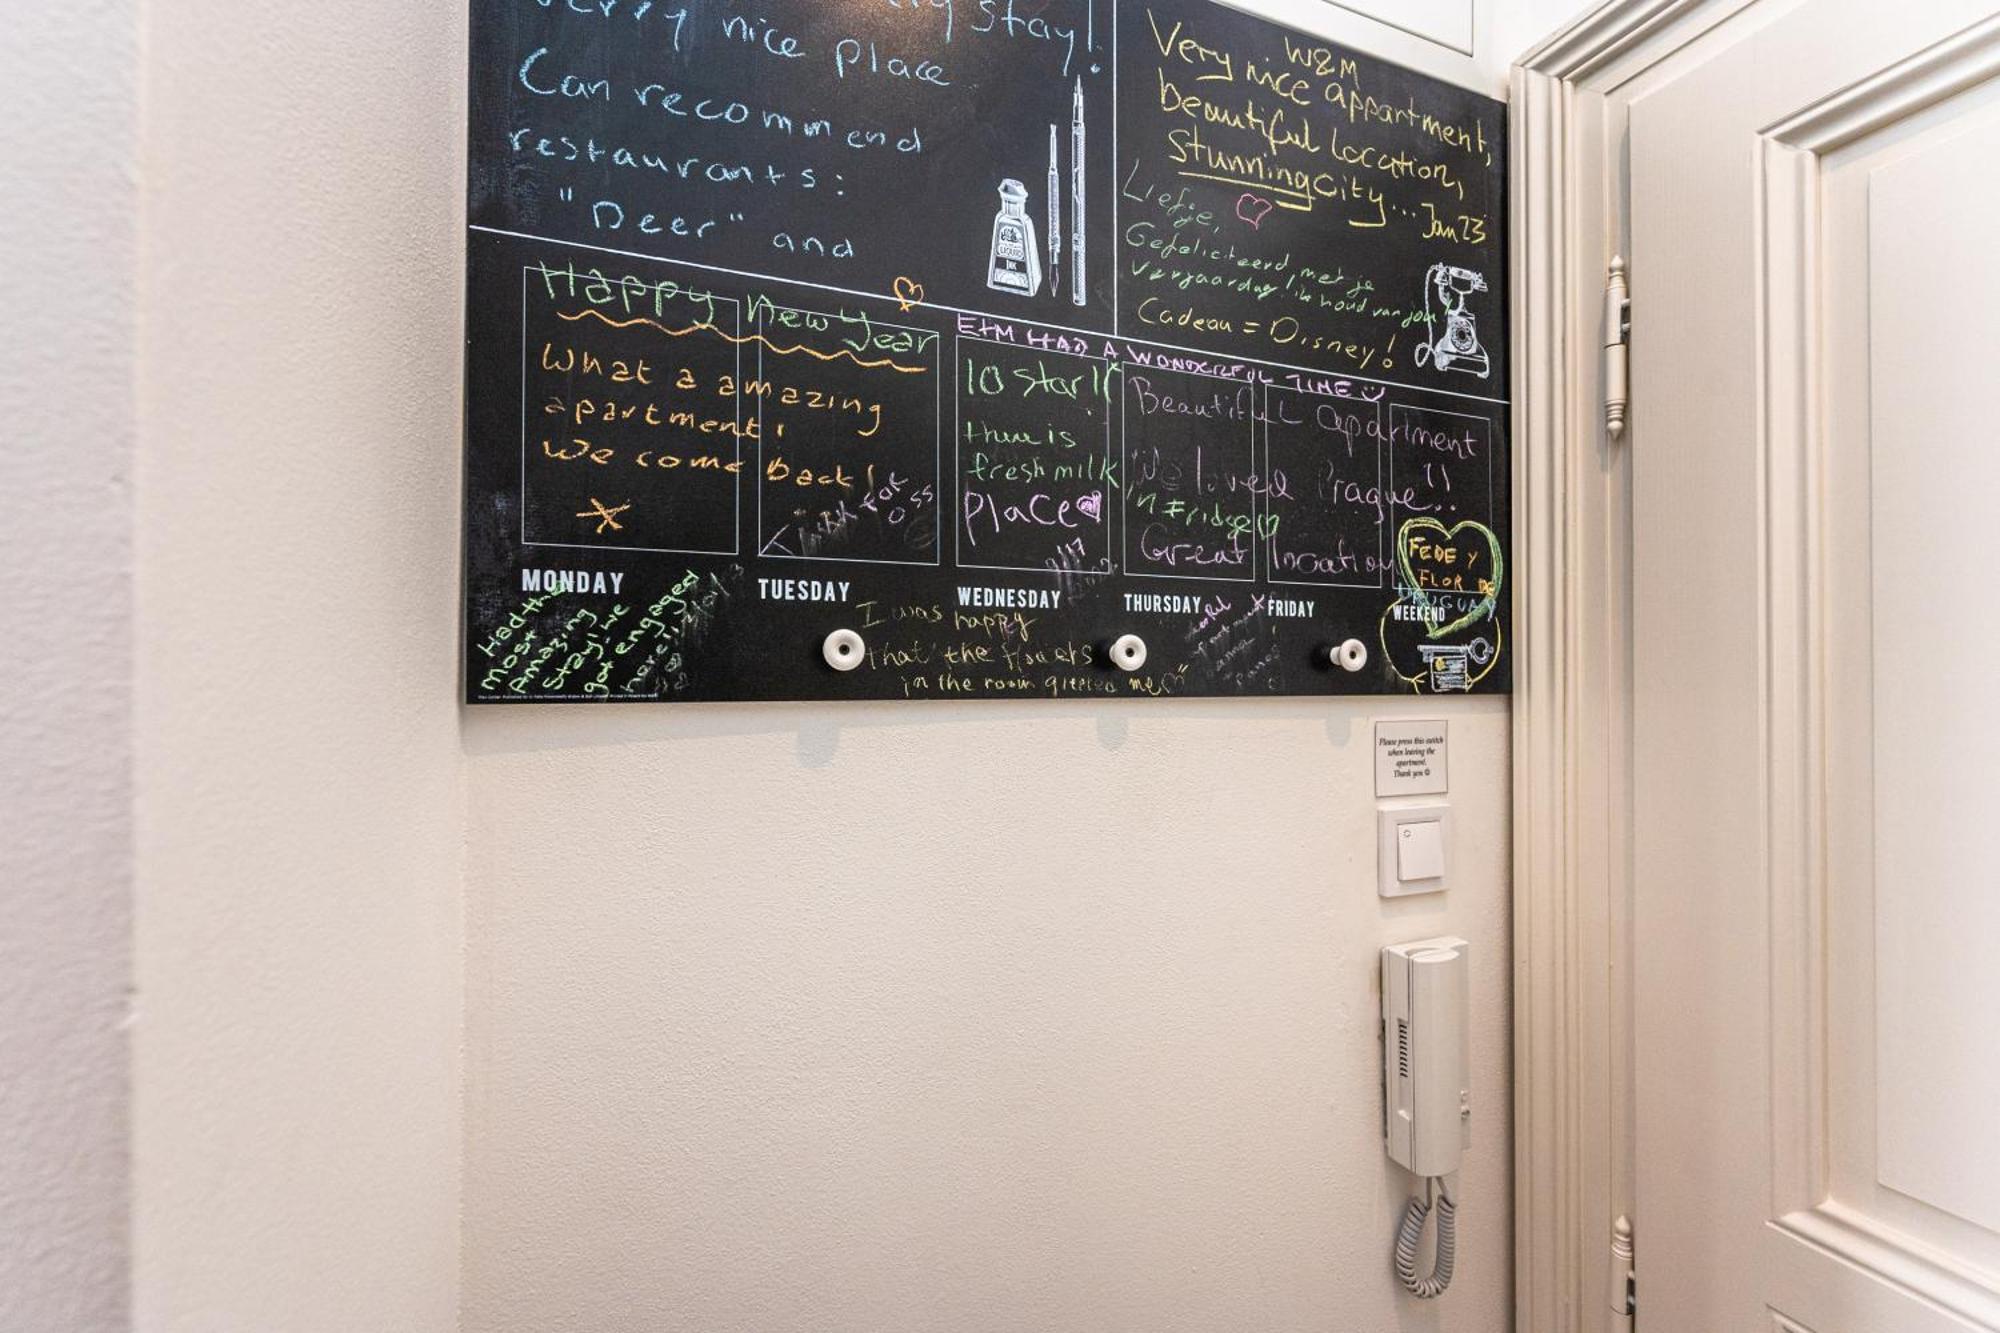 stay!
Very nice place
Can recommend
restaurants:
"Deer" and
W&M
Very nice appartment,
beautiful location,
stunning city... Jan 23
Liefje,
Gefeliciteerd met je
verjaardag!
Cadeau = Disney!
LIQUID
INK
Happy New Year
What a amazing
apartment!
We come back!
E+M HAD A WONDERFUL TIME
10 star!!
there is
fresh milk
in Fridge
Place
Beautiful apartment
!!
We loved Prague!!
Great location
FEDE Y
FLOR DE
URUGUAY
MONDAY
TUESDAY
WEDNESDAY
THURSDAY
FRIDAY
WEEKEND
Had the
most
Amazing
stay! we
got engaged
here!!
I was happy
that the flowers
in the room greeted me
Please press this switch
when leaving the
apartment.
Thank you ☺